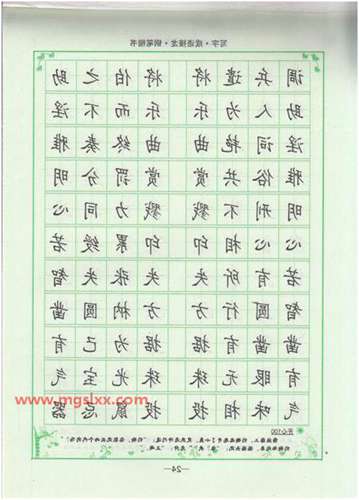 写字·成语接龙·钢笔楷书
调兵遣将将伯之助
助人为乐乐而不淫
淫词艳曲曲终奏雅
雅俗共赏赏罚分明
明刑不戮戮力同心
心心相印印累绶若
若有所失失张失智
智圆行方方枘圆凿
凿凿有据据为己有
有眼无珠珠光宝气
气味相投投鼠忌器
www.mgslxx.com
开心100
—24—